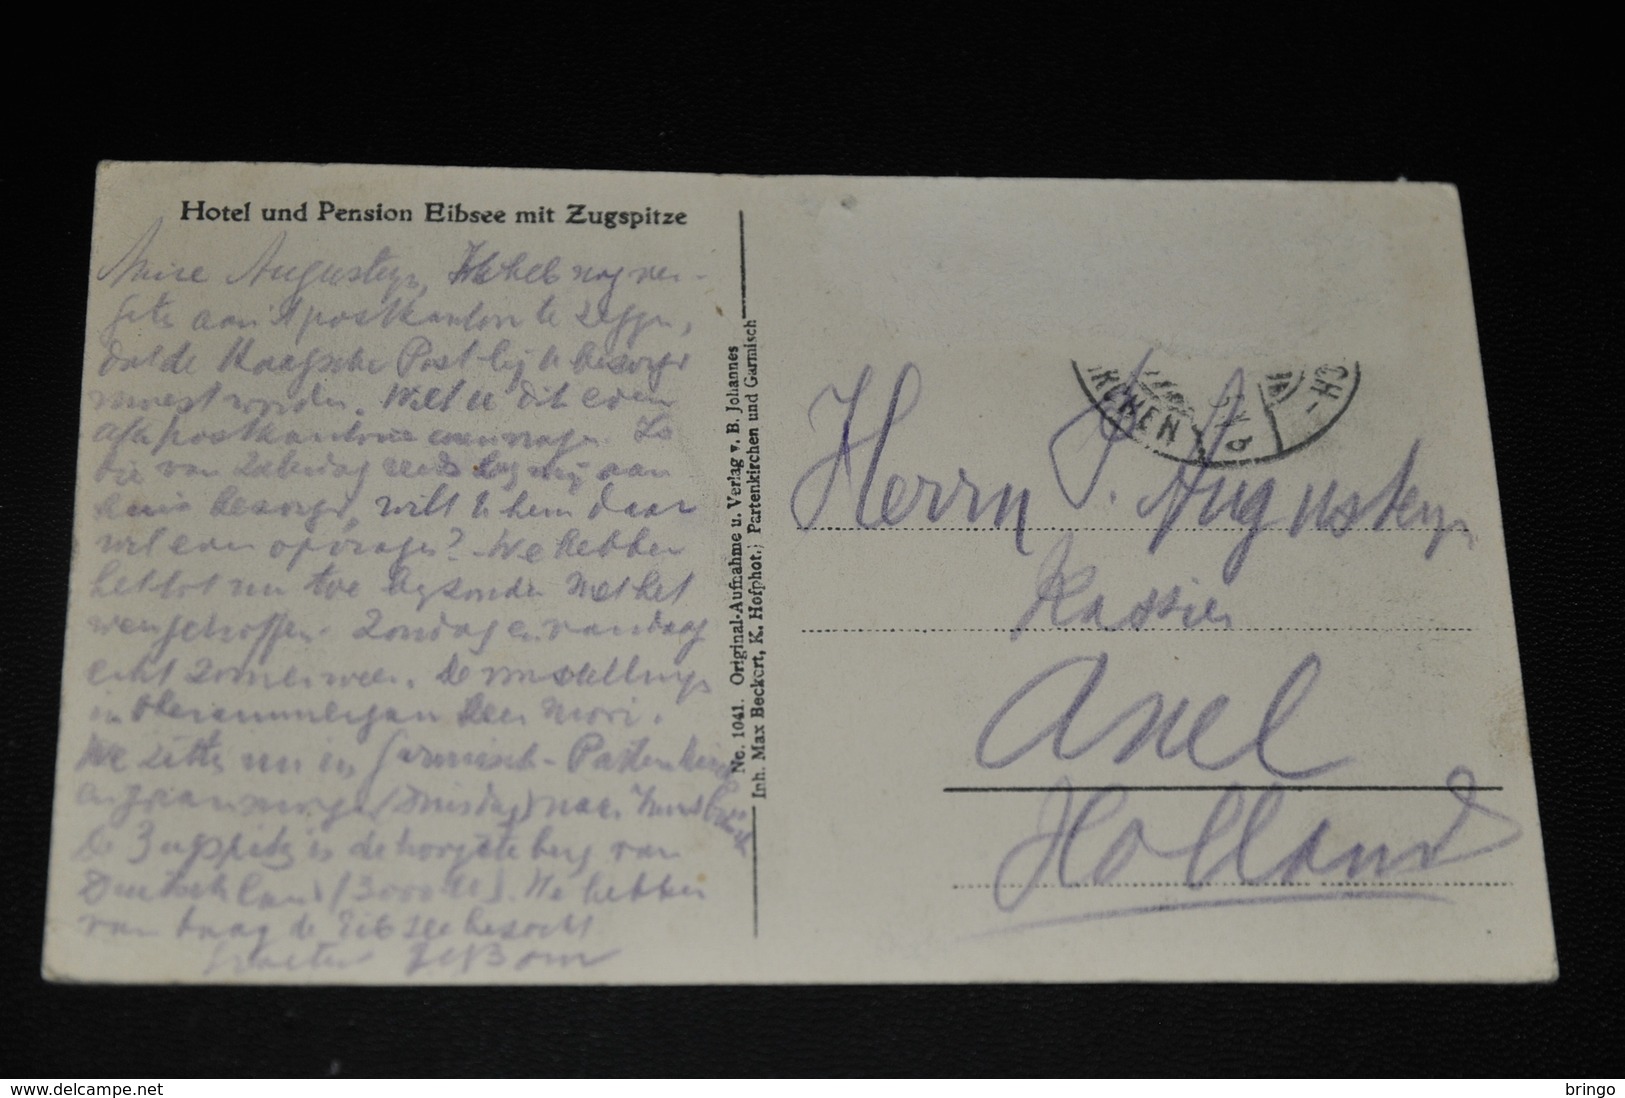 Hotel und Pension Eibsee mit Zugspitze
Augusteyn, Ik heb nog ver-
geten aan 't postkantoor te zeggen,
dat de Haagsche Post bezorgd
moest worden. Wilt u dit even
a/h postkantoor aanvragen. Zo
die van Zaterdag reeds mij aan
huis bezorgd, wilt u hem daar
wel even opvragen? We hebben
het tot nu toe bijzonder met het
weer getroffen. Zondag en vandaag
echt zomerweer. De voorstelling
in Oberammergau zeer mooi.
We zitten nu in Garmisch-Partenkirchen
en gaan morgen (Dinsdag) naar Innsbrück
De Zugspitze is de hoogste berg van
Deutschland (3000 M). We hebben
vandaag de Eibsee bezocht
No. 1041. Original-Aufnahme u. Verlag v. B. Johannes
Inh. Max Beckert, K. Hofphot.; Partenkirchen und Garmisch
RCHEN
Herrn J. Augusteyn
Kassier
Axel
Holland
bringo